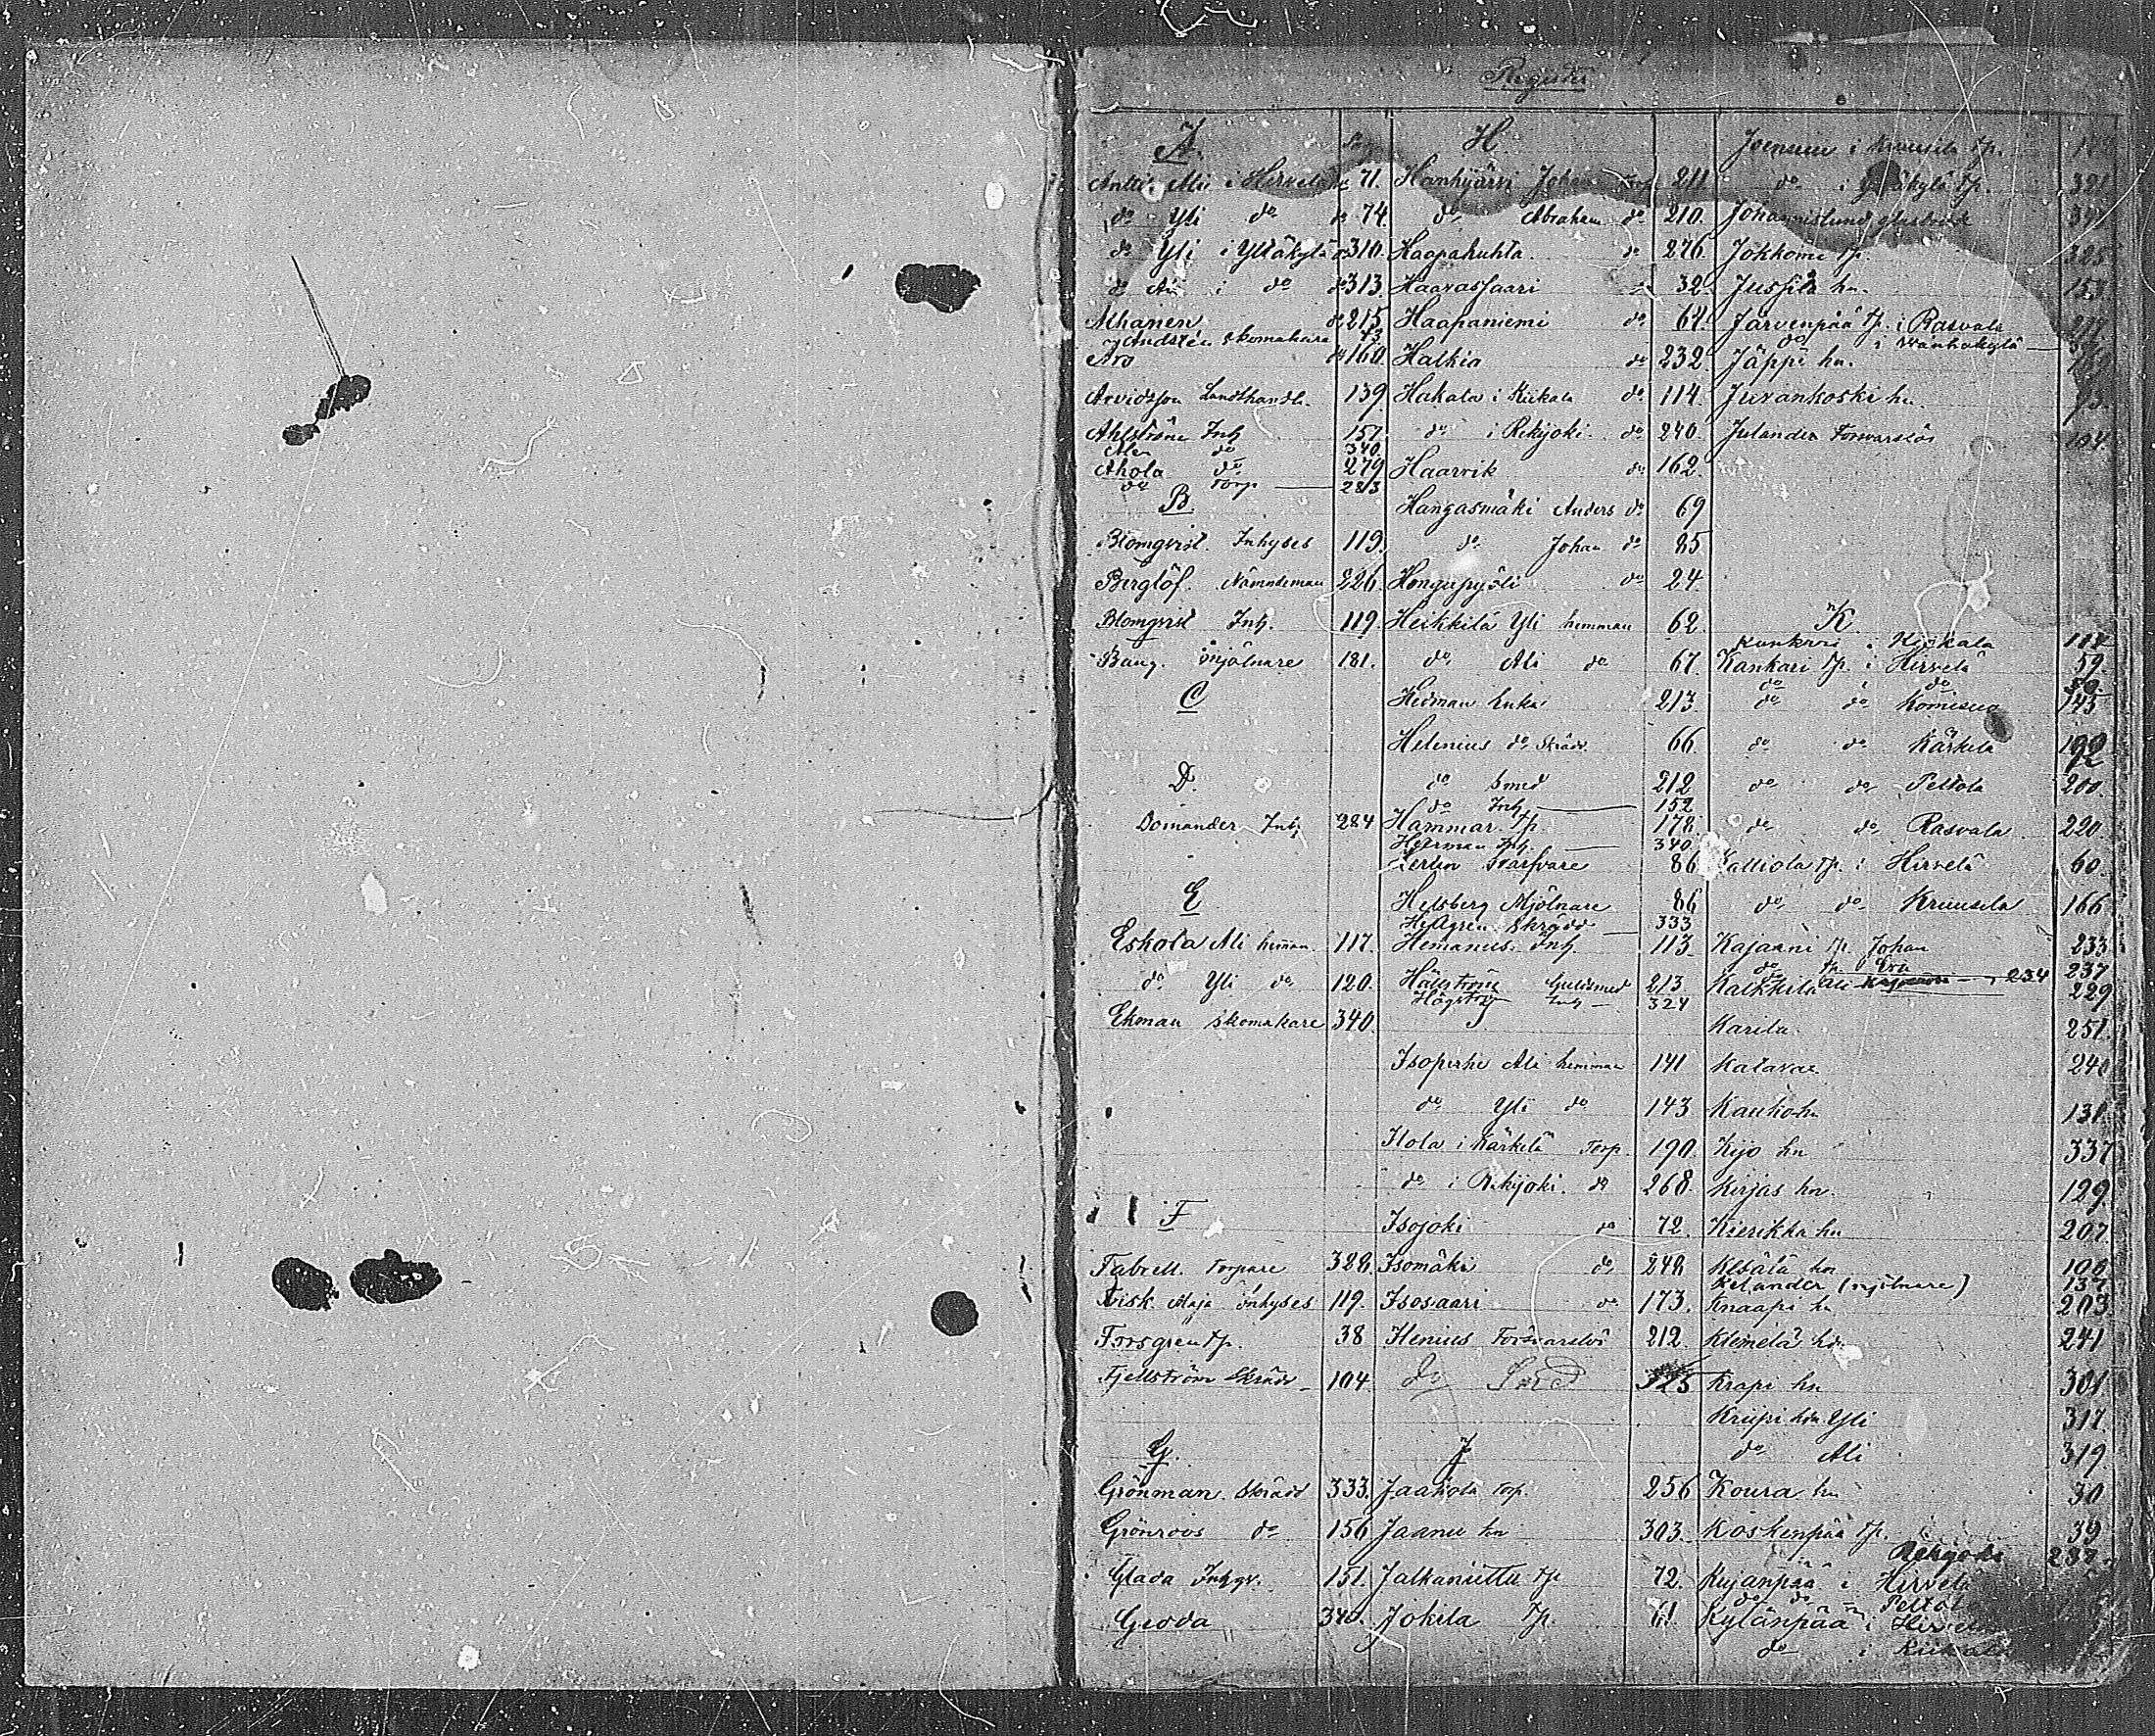 Register
A.
Antti Ali i Hirvelä 71.
do Yli do do 74.
do Yli i Yltäkylä do 310.
do Ali i do do 313.
Alhanen do 215.
Andstén Skomakare 13
Aro do 160.
Arvidsson Landthandl. 139.
Ahlström Inh 157.
Alen do 340.
Ahola do 279
do Torp 283
B.
Blomqvist Inhyses 119.
Berglöf Nämndeman 226.
Blomqvist Inh. 119.
Baug. mjölnare 181.
C
D.
Domander Inh 284
E
Eskola Ali heman. 117.
do Yli do 120.
Ekman Skomakare 340.
F
Fabrell. Torpare 328.
Fisk Maja inhyses 119.
Forsgren Tp. 38
Fjellström Skrädd 104
G.
Grönman. Skrädd 333.
Grönroos do 156
Glada Inhys. 151.
Groda 340.
H.
Hanhijärvi Johan Torp 211
do Abraham do 210.
Haapahuhta do 276.
Haavassaari 32.
Haapaniemi do 64.
Halkia do 232.
Hakala i Kiikala do 114.
do i Rekijoki do 240.
Haarvik do 162.
Hangasmäki Anders do 69
do Johan do 85
Hongupyöli do 24.
Heikkilä Yli hemman 62.
do Ali do 67.
Hedman Enka 213.
Helenius do Skrädd 66
do Smed 212
do Inh 152
Hammar Tp. 178.
Herman Inh. 340
Svarfvare 86
Helsberg Mjölnare 86
Hellgren Skrädd 333
Hemanus Inh 113
Hällström Guldsmed 213
Högström Inh 324
I
Isoperhe Ali hemman 141
do Yli do 143
Ilola i Kärkelä Torp 190.
do i Rekijoki do 268.
Isojoki do 72.
Isomäki do 248
Isosaari do 173.
Ilenius Försvarslös 212.
do 325
J
Jaakola Torp. 256
Jaanu hn 303.
Jalkaniittu Tp 72.
Jokela Tp. 61.
Joensuu i Kruusila Tp.
do i Yltäkylä Tp. 391
Johannislund glasbruk
Jokkomi Tp. 325
Jussila hn. 153
Järvenpää Tp. i Rasvala
do i Vanhakylä
Jäppi hn.
Juvankoski hn.
Julander Försvarslös 104.
K.
Kankari i Kiikala 114
Kankari Tp. i Hirvelä 59.
do i do
do do Komisuo 143
do do Kärkelä 192
do do Peltola 200.
do do Rasvala 220.
Kalliola Tp. i Hirvelä 60.
do do Kruusila 166
Kajaani Tp. Johan 233
do Tp. Eva 234 237
Kalkkila Ali 229
Karila 251.
Katavas 240
Kauko hn 131.
Kijo hn 337
Kirjas hn. 129.
Kierikka hn 207.
Kesälä hn 198
Kelander (mjölnare) 137
Knaapi hn 203.
Klemelä hn. 241
Krapi hn 301
Kriipi hn Yli 317.
do Ali 319
Koura hn 30
Koskenpää Tp. 39
Rekijoki 238
Kujanpää i Hirvelä
do do Peltola
Kylänpää i Hirvelä
do i Kiikala